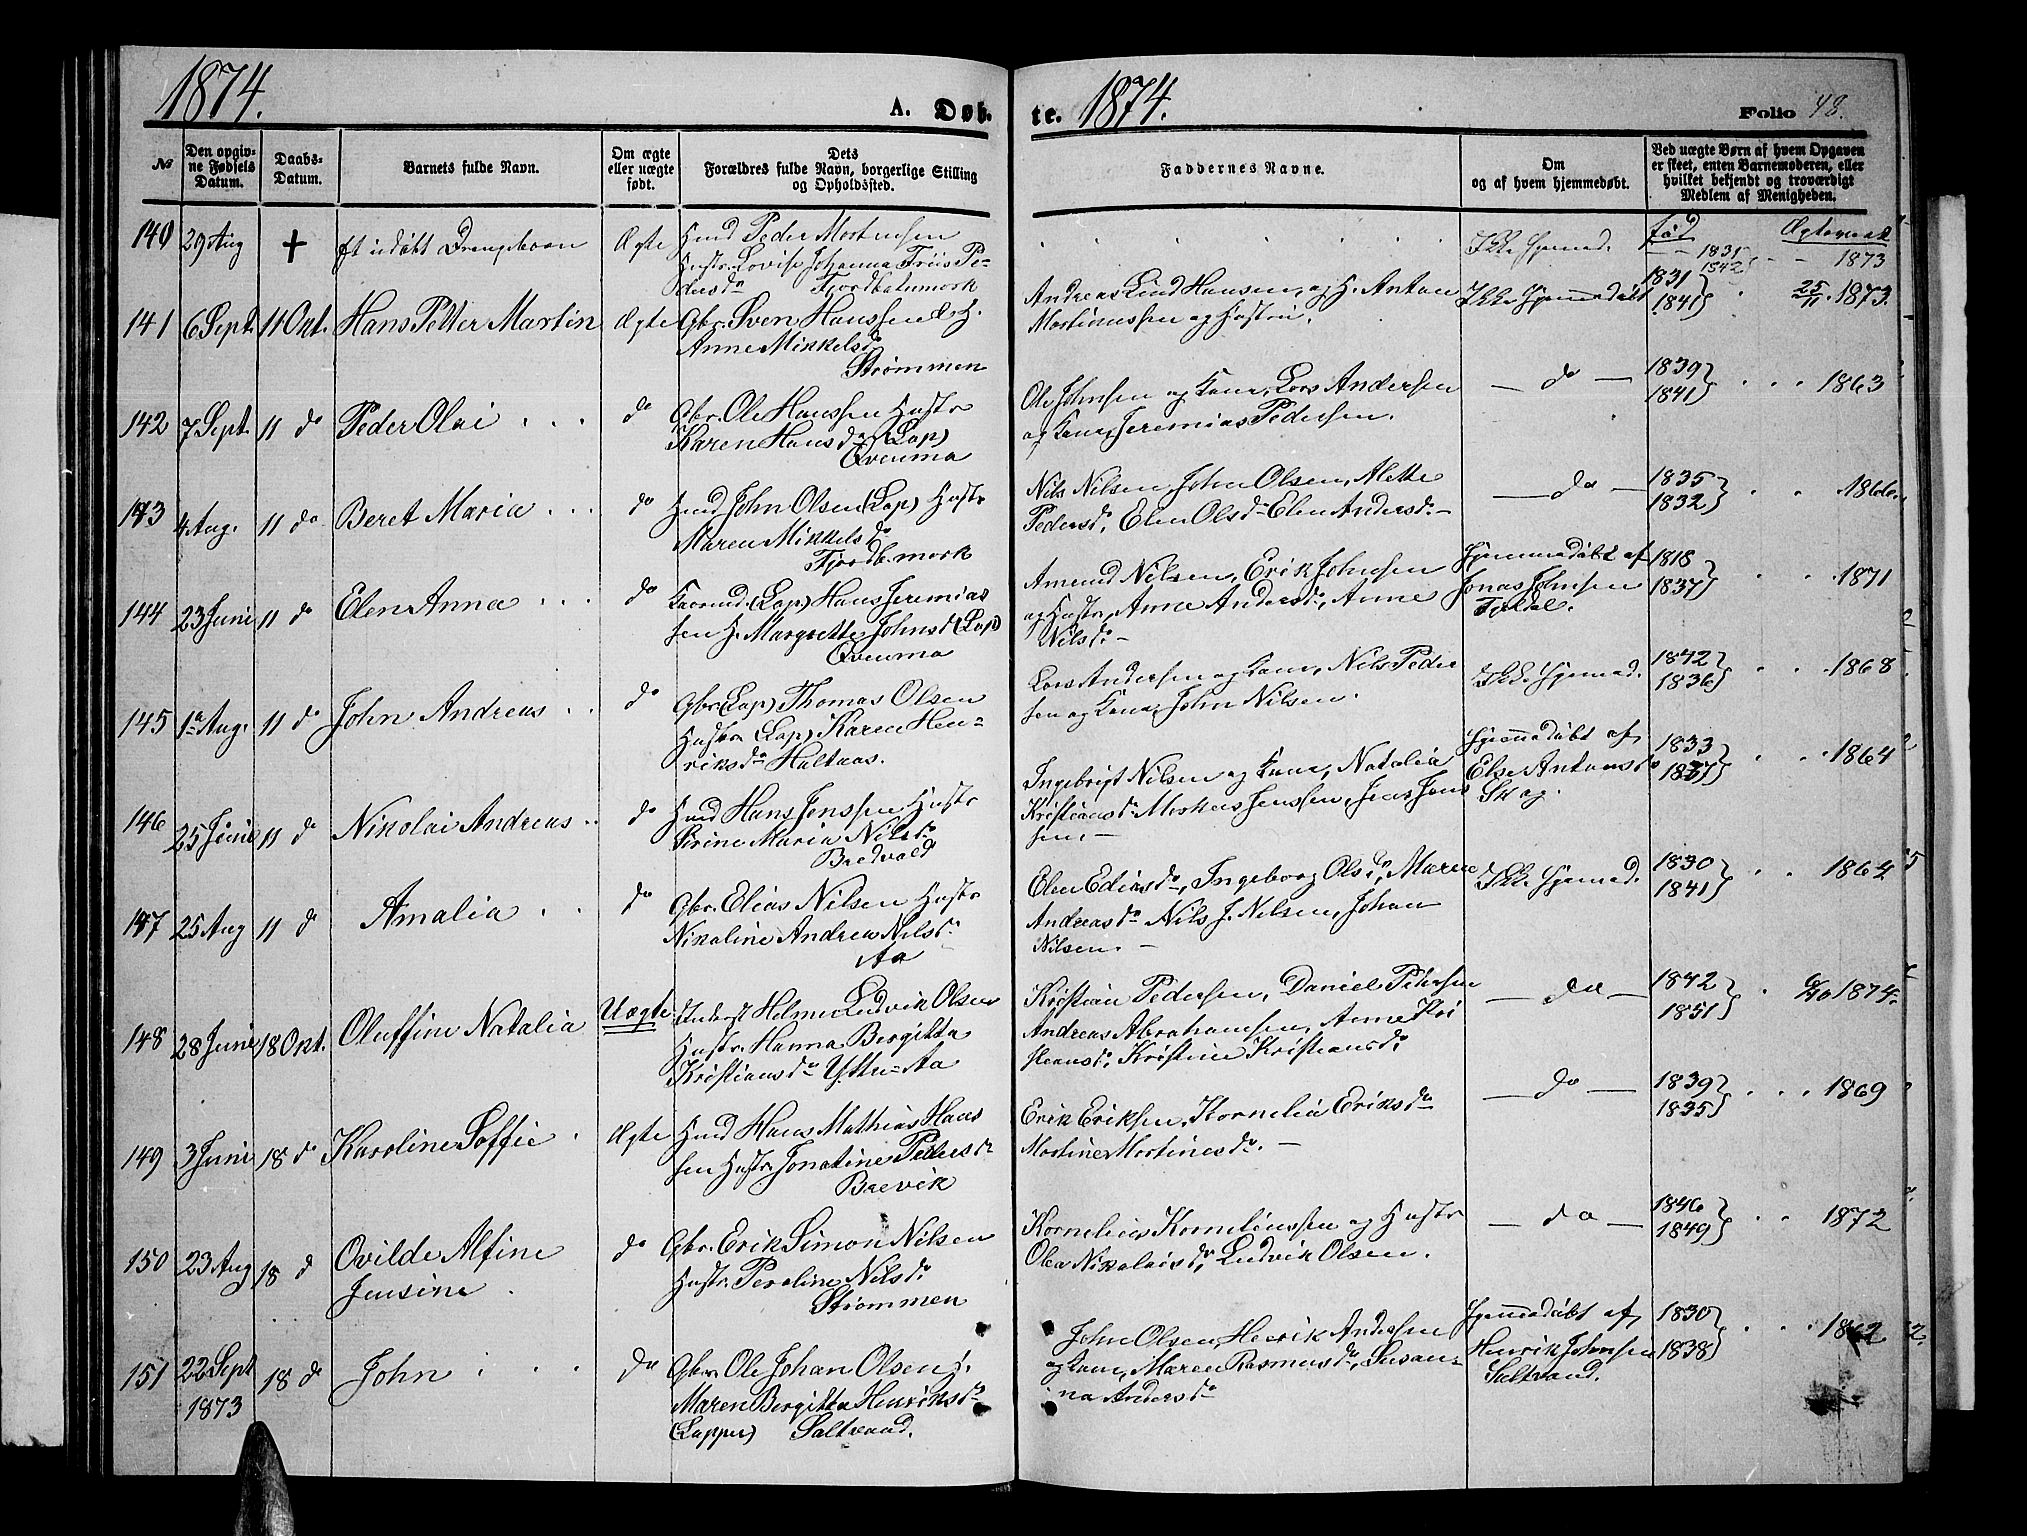 1874.
A. Døb.
te. 1874.
Folio 48.
№
Den opgiv-
ne Fødsels
Datum.
Daabs-
Datum.
Barnets fulde Navn.
Om ægte
eller uægte
født.
Dets
Forældres fulde Navn, borgerlige Stilling
og Opholdssted.
Faddernes Navne.
Om
og af hvem hjemmedøbt.
Ved uægte Børn af hvem Opgaven
er skeet, enten Barnemoderen, eller
hvilket bekjendt og troværdigt
Medlem af Menigheden.
140 29 Aug † et udøbt Drengebarn Ægte Hmd Peder Mortensen
Hustr. Lovise Johanna Fröis Pe-
dersd
Ikke hjemmed.
født
1831
1842 1873
141 6 Sept. 11 Okt. Hans Petter Martin Ægte Gbr. Sven Hanssen & H.
Anne Mikkelsd
Strømmen
Andreas Lind Hansen, og H. Anton
Mortianssen og Hustru.
Ikke hjemmedøbt
1831
1841 25/11 1873.
142 7 Sept. 11 do Peder Olai do Gbr. Ole Hanssen Hustr
Karen Hansd (Lap)
Qvenmo
Ole Johnsen og Kone, Lars Andersen
og Kone, Jeremias Pedersen.
do
1839
1841 1863
143 4 Aug. 11 do Beret Maria do Hmd John Olsen (Lap) Hustr
Maren Mikkelsd
Fjordb.mark
Nils Nilsen, John Olsen, Alette
Pedersd, Elen Olsd Elen Andersd.
do
1835
1832 1866.
144 23 Juni 11 do Elen Anna do (Lap) Hans Jeremias
sen H. Margrette Johnsd (Lap)
Qvenmo
Amund Nilsen, Erik Johnsen
og Hustr, Anna Andersd, Anne
Nilsd.
Hjemmedøbt af
Jonas Johnsen
1818
1837 1871
145 1ª Aug. 11 do John Andreas do Gbr (Lap) Thomas Olsen
Hustr (Lap) Karen Hen-
riksd Haltaas.
Lars Andersen og Kone, Nils Peder
sen og Kone, John Nilsen.
Ikke hjemmed.
1842
1836 1868
146 25 Juni 11 d Nikolai Andreas do Hmd Hans Jenssen Hustr
Sirine Maria Nilsd
Bredvold
Ingebrigt Nilsen og Kone, Natalia
Kristiansd, Markus Jenssen, Jens Jens
sen.
Hjemmedøbt af
Else Antonsd
Skog.
1833
1837 1864
147 25 Aug 11 d Amalia do Gbr. Elias Nilsen Hustr
Nikoline Andrea Nilsd
Aa
Elen Ediasd, Ingeborg Olsd, Maren
Andreasd Nils J. Nilsen, Johan
Nilsen.
Ikke hjemmed.
1830
1841 1864
148 28 Juni 18 Okt. Oluffine Natalia Uægte Helmer Ludvik Olsen
Hustr. Hanna Bergitta
Kristiansd Yttre-Aa
Kristian Pedersen, Daniel Petersen
Andreas Abrahamsen, Anne Kri
stiansd, Kristine Kristiansd
do
1842
1851 6/10 1874
149 3 Juni 18 d Karoline Soffie Ægte Hmd Hans Mathias Hans
sen Hustr. Jonatine Pettersd
Brevik
Erik Eriksen, Kornelia Eriksd
Mortine Mortinesd.
do
1839
1835 1869
150 23 Aug 18 d Ovilde Alfine
Jensine do Gbr. Erik Simon Nilsen
Hustr. Peroline Nilsd.
Strømmen
Kornelius Korneliussen og Hustr
Olea Nikolaisd, Ludvik Olsen.
do
1846
1849 1872
151 22 Sept
1873 18 d John do Gbr. Ole Johan Olsen H.
Maren Bergitta Henriksd
(Lapper) Saltvand.
John Olsen, Henrik Andersen
og Kone, Maren Rasmusd, Susan-
na Andersd
Hjemmedøbt af
Henrik Johnsen
Saltvand.
1830
1838 1862